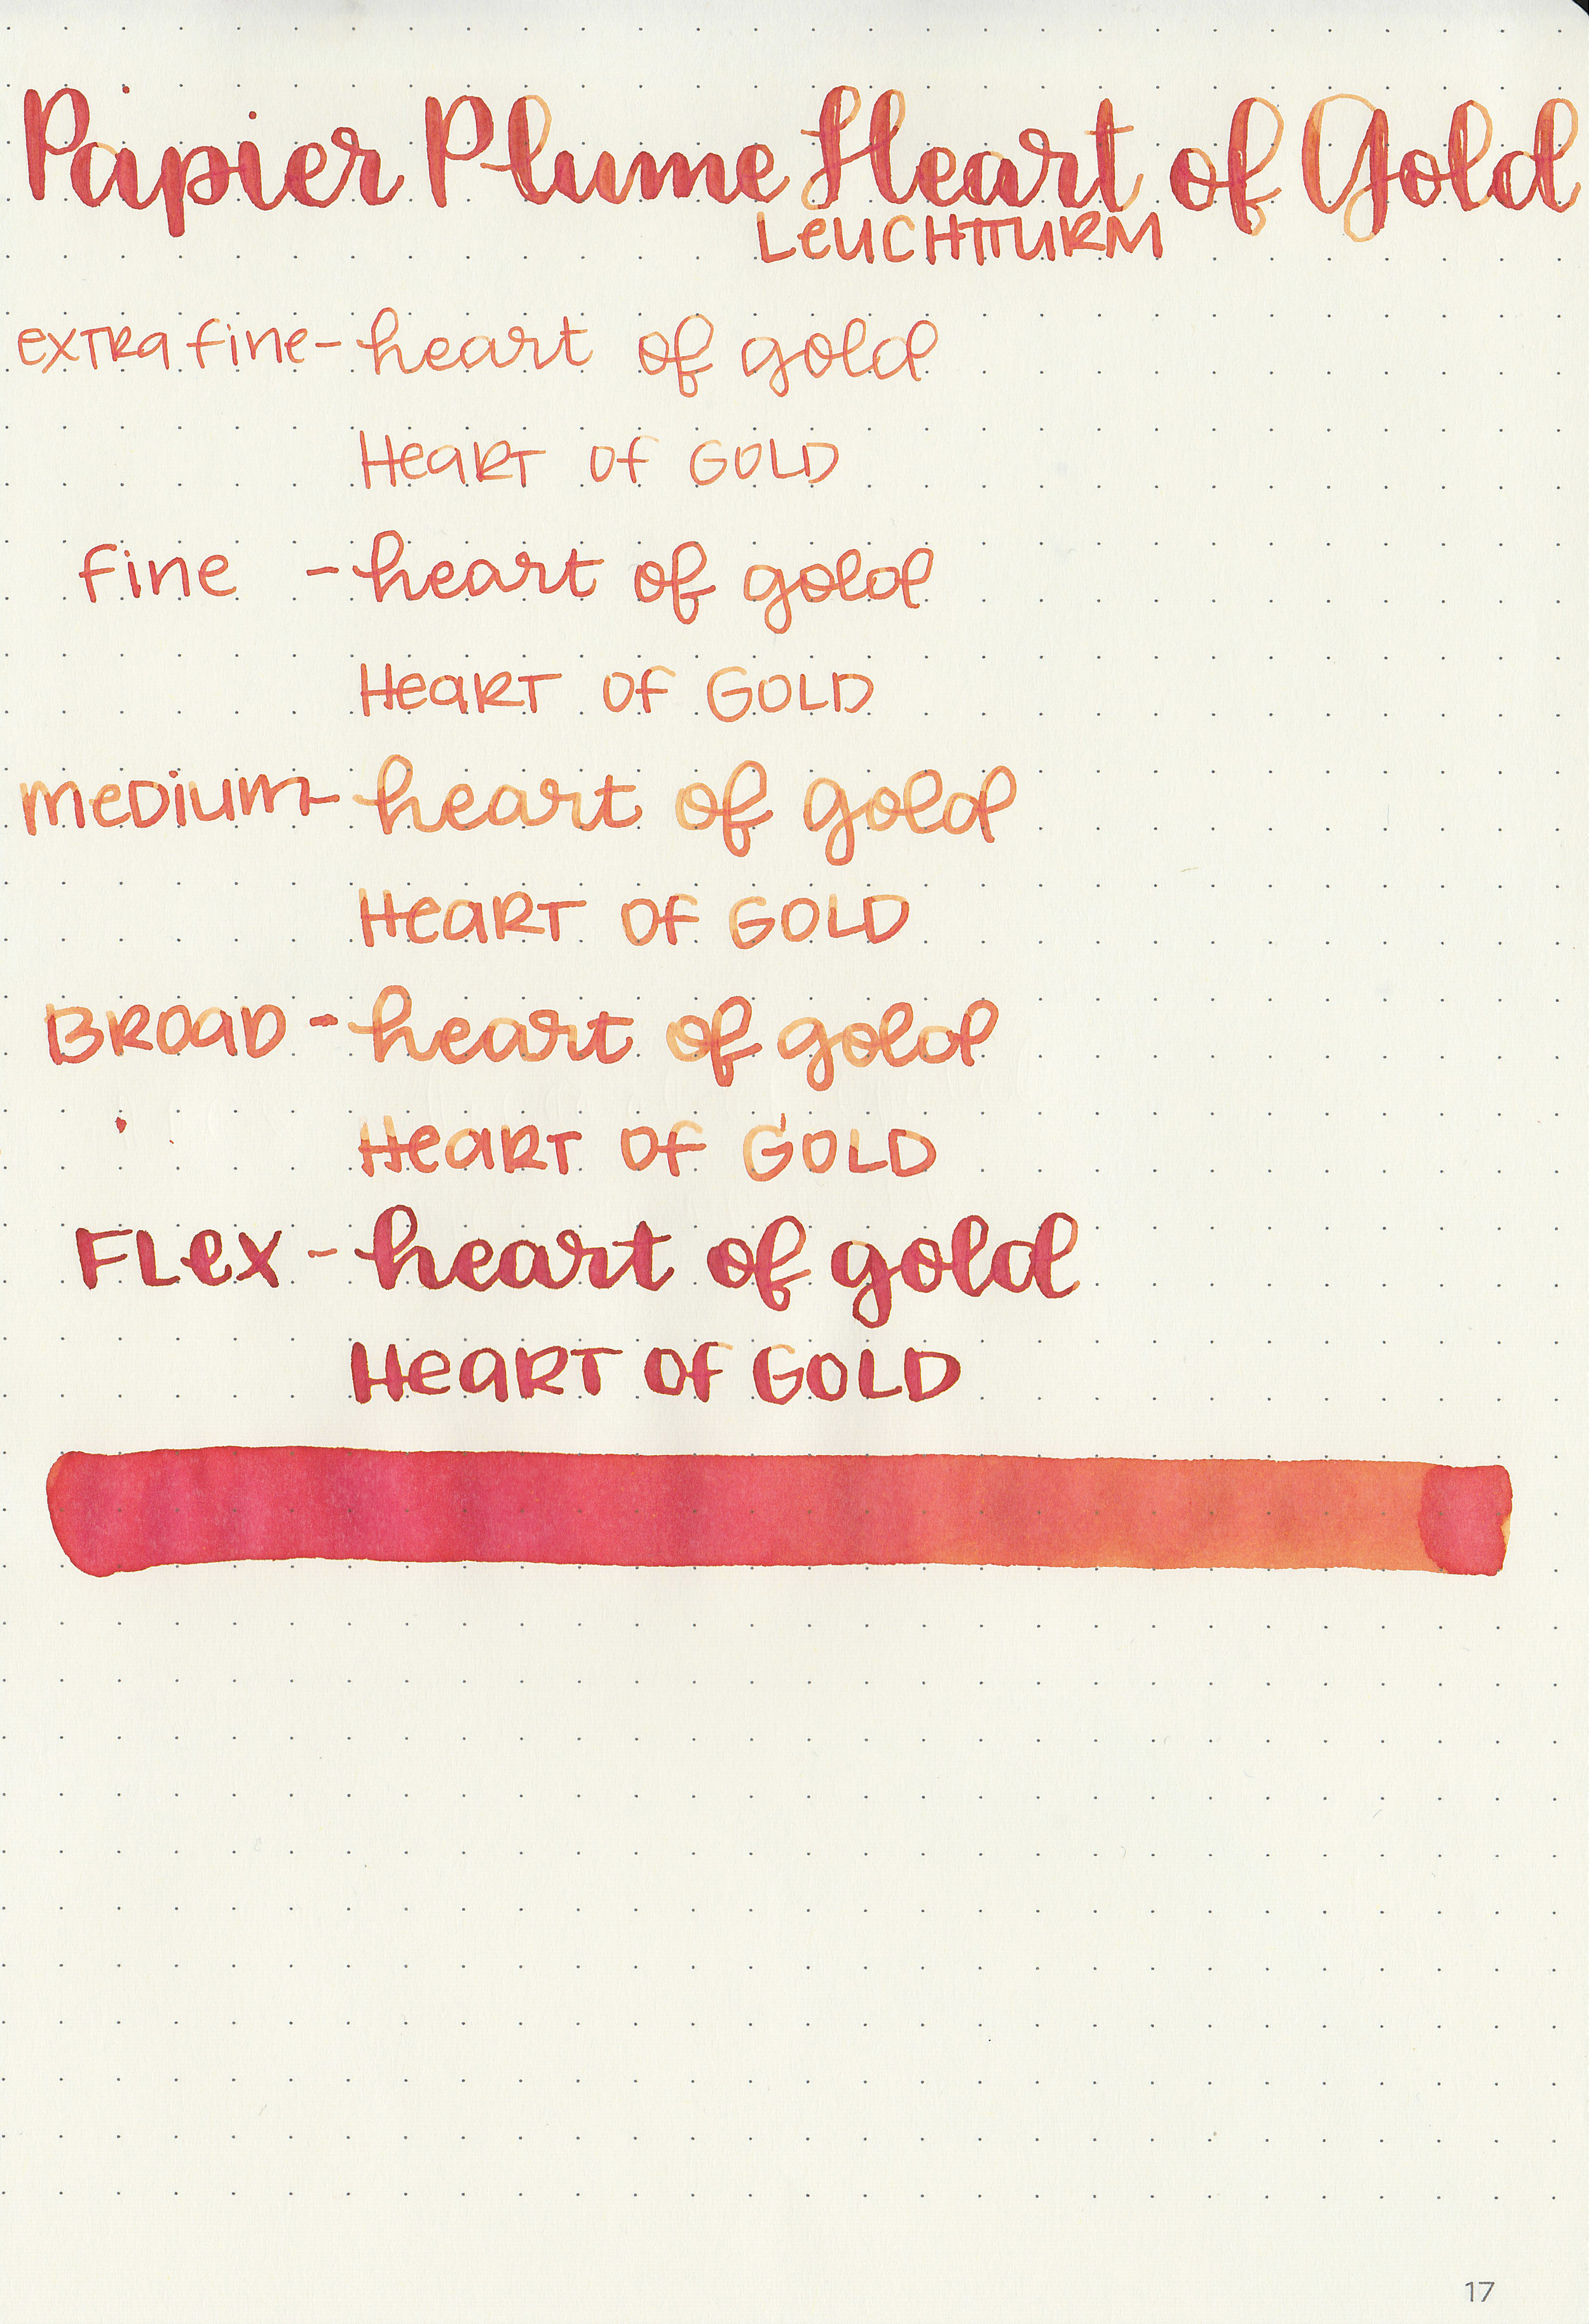 Papier Plume Heart of Gold
LeUCHTTURM
exTRa fine- heart of gold
HeaRT Of GOLD
fine - heart of gold
HeaRT Of GOLD
meDium- heart of gold
HeaRT Of GOLD
BROaD - heart of gold
HeaRT Of GOLD
FLex - heart of gold
HeaRT Of GOLD
17